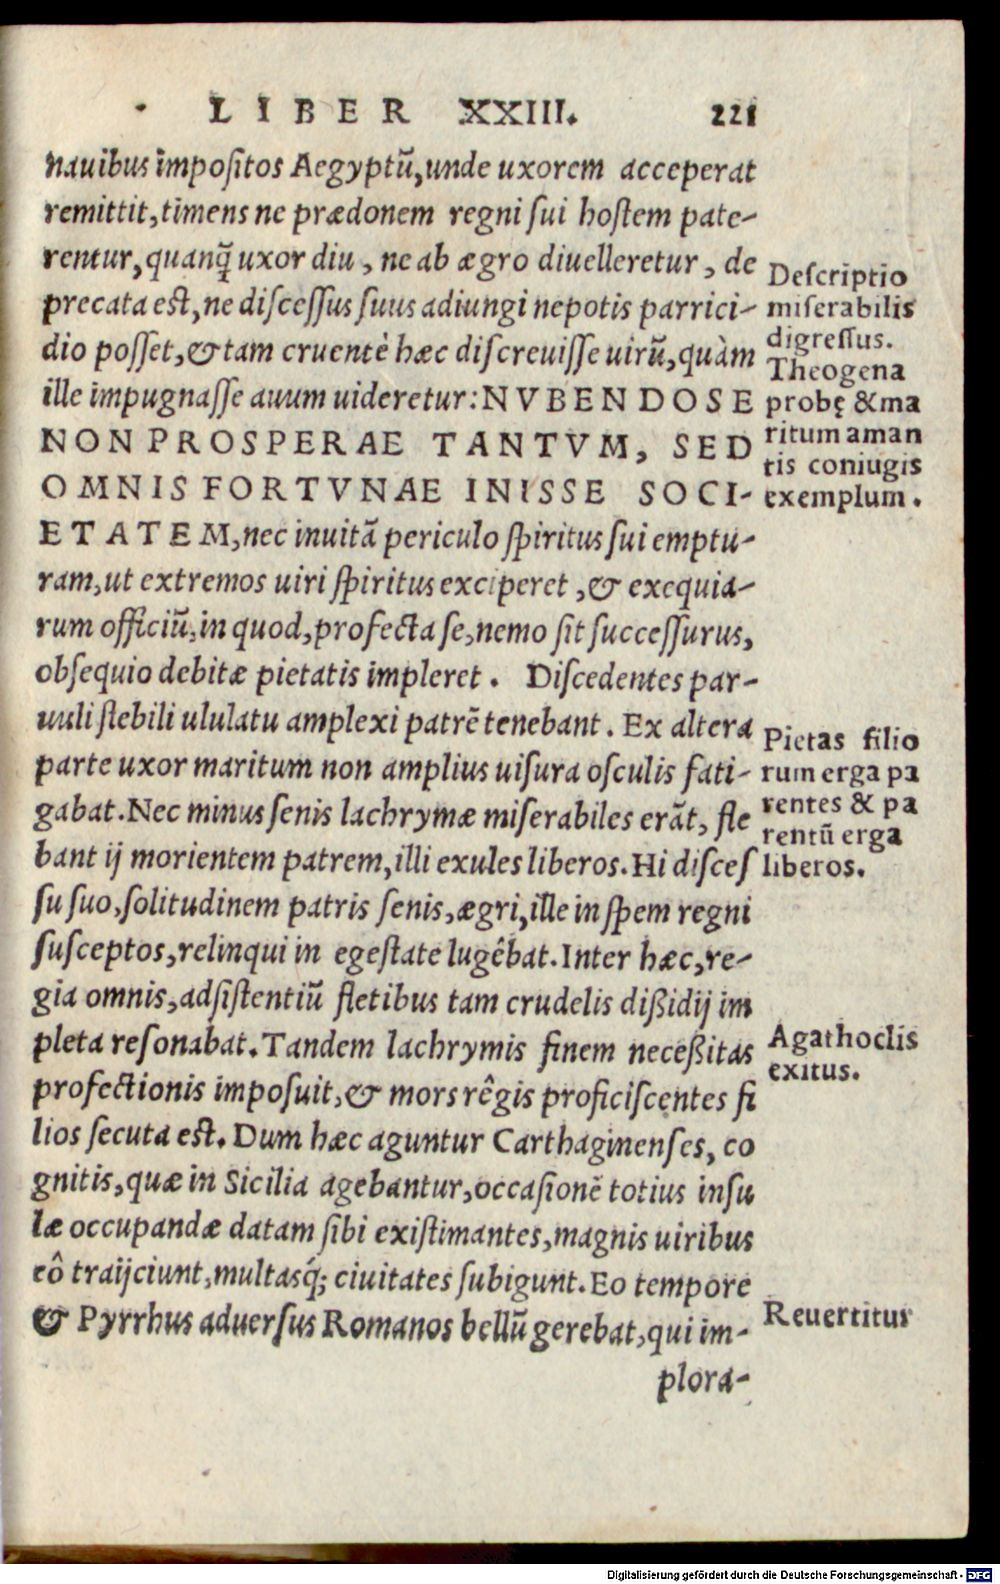 LIBER XXIII. 221
nauibus impoſitos Aegyptũ, unde uxorem acceperat
remittit, timens ne prædonem regni ſui hoſtem pate-
rentur, quanq̃ uxor diu, ne ab ægro diuelleretur, de
precata eſt, ne diſceſſus ſuus adiungi nepotis parrici-
dio poſſet, & tam cruentè hæc diſcreuiſſe uirũ, quàm
ille impugnaſſe auum uideretur: NVBENDO SE
NON PROSPERAE TANTVM, SED
OMNIS FORTVNAE INISSE SOCI-
ETATEM, nec inuitã periculo ſpiritus ſui emptu-
ram, ut extremos uiri ſpiritus exciperet, & exequia-
rum officiũ, in quod, profecta ſe, nemo ſit ſucceſſurus,
obſequio debitæ pietatis impleret. Diſcedentes par-
uuli flebili ululatu amplexi patrẽ tenebant. Ex altera
parte uxor maritum non amplius uiſura oſculis fati-
gabat. Nec minus ſenis lachrymæ miſerabiles erãt, fle
bant ij morientem patrem, illi exules liberos. Hi diſceſ
ſu ſuo, ſolitudinem patris ſenis, ægri, ille in ſpem regni
ſuſceptos, relinqui in egeſtate lugêbat. Inter hæc, re-
gia omnis, adſiſtentiũ fletibus tam crudelis dißidij im
pleta reſonabat. Tandem lachrymis finem neceßitas
profectionis impoſuit, & mors rêgis proficiſcentes fi
lios ſecuta eſt. Dum hæc aguntur Carthaginenſes, co
gnitis, quæ in Sicilia agebantur, occaſionẽ totius inſu
læ occupandæ datam ſibi exiſtimantes, magnis uiribus
eô traijciunt, multasq́; ciuitates ſubigunt. Eo tempore
& Pyrrhus aduerſus Romanos bellũ gerebat, qui im-
plora-
Deſcriptio
miſerabilis
digreſſus.
Theogena
probę & ma
ritum aman
tis coniugis
exemplum.
Pietas filio
rum erga pa
rentes & pa
rentũ erga
liberos.
Agathoclis
exitus.
Reuertitur
Digitalisierung gefördert durch die Deutsche Forschungsgemeinschaft - DFG